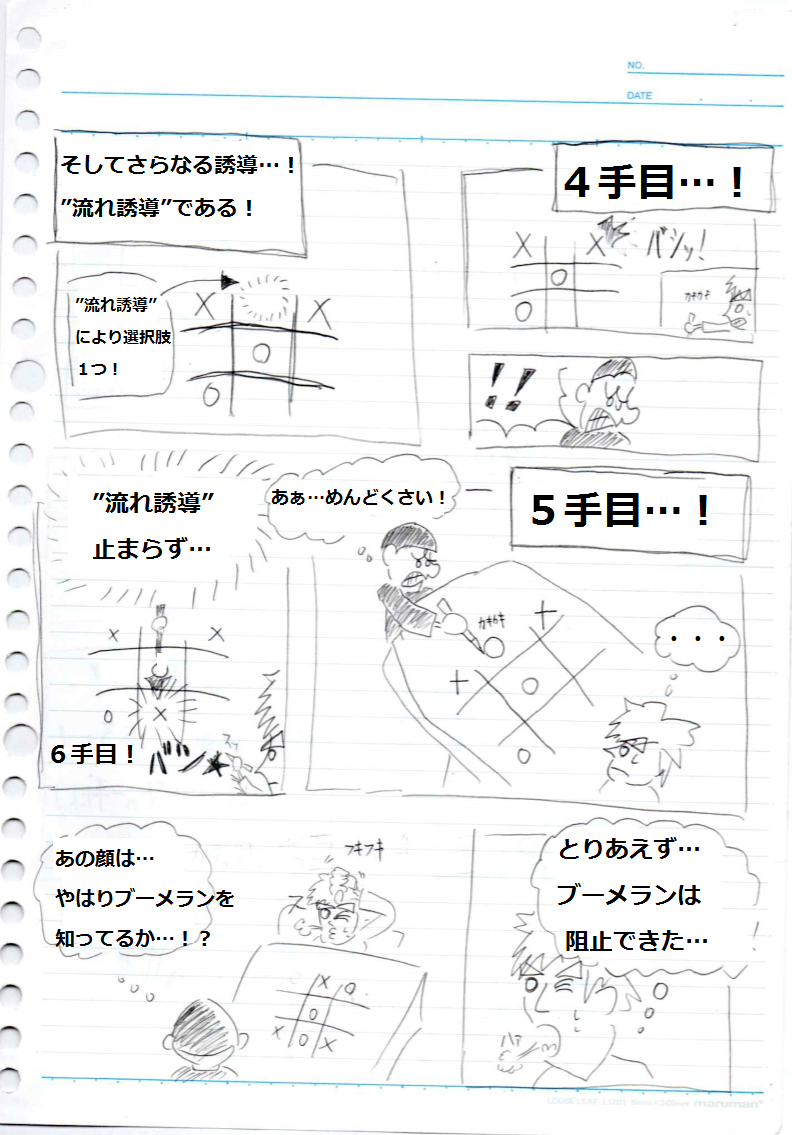 NO.
DATE
４手目…！
バシッ！
カキカキ
！！
そしてさらなる誘導…！
”流れ誘導”である！
”流れ誘導”
により選択肢
１つ！
X
X
O
O
５手目…！
あぁ…めんどくさい！
カキカキ
・・・
”流れ誘導”
止まらず…
６手目！
バン
とりあえず…
ブーメランは
阻止できた…
あの顔は…
やはりブーメランを
知ってるか…！？
フキフキ
maruman